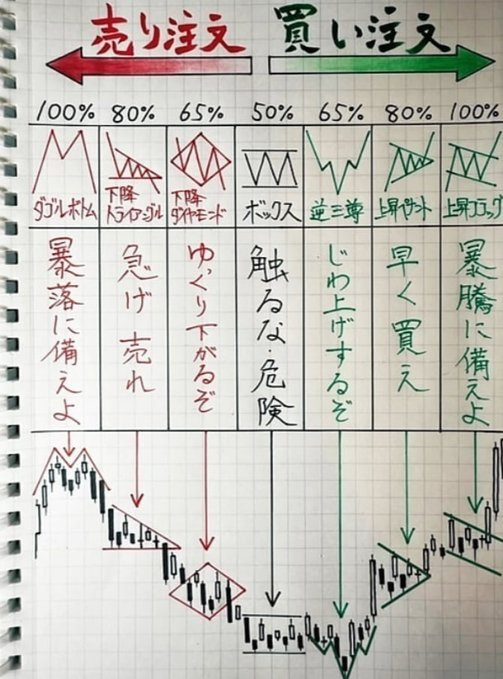 売り注文
買い注文
100% 80% 65% 50% 65% 80% 100%
ダブルボトム
下降
トライアングル
下降
ダイヤモンド
ボックス
逆三尊
上昇ペナント
上昇フラッグ
暴落に備えよ
急げ売れ
ゆっくり下がるぞ
触るな・危険
じわ上げするぞ
早く買え
暴騰に備えよ